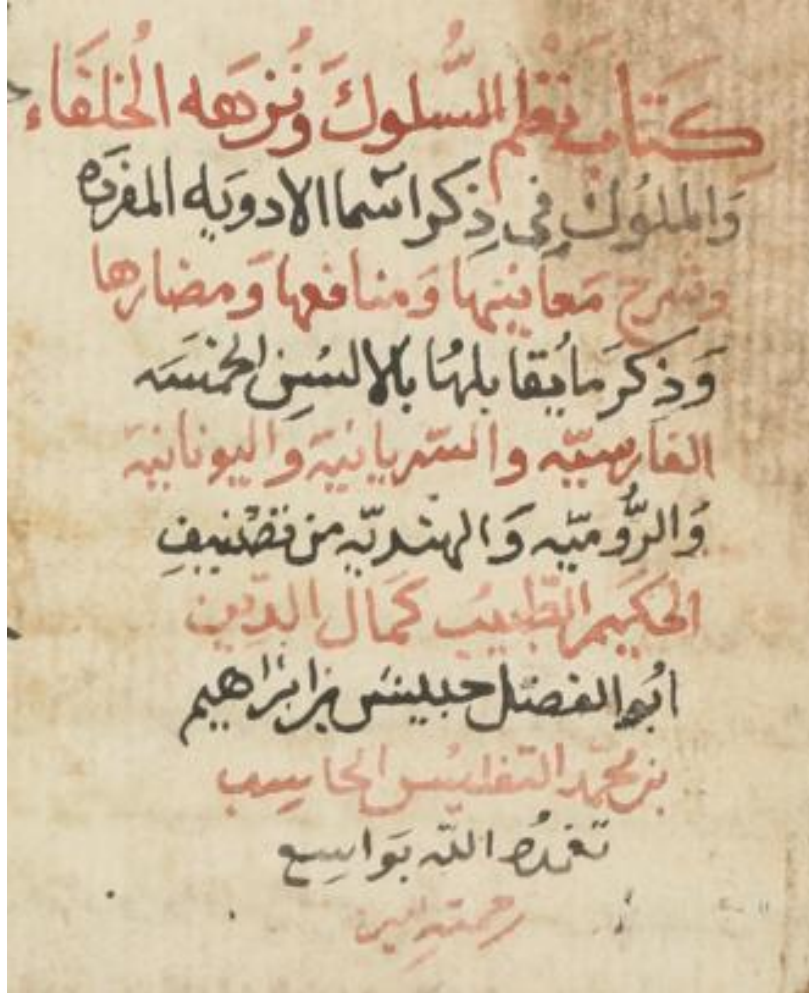 كتاب نظم السلوك ونزهه الخلفاء
والملوك في ذكر اسما الادويه المفرده
وشرح معانيها ومنافعها ومضارها
وذكر ما يقابلها بالالسن الخمسه
الفارسيه والسريانية واليونانية
والروميه والهنديه من تصنيف
الحكيم الطبيب كمال الدين
ابو الفضل حبيش بن ابراهيم
بن محمد التفليس الحاسب
تغمده الله بواسع
رحمته امين